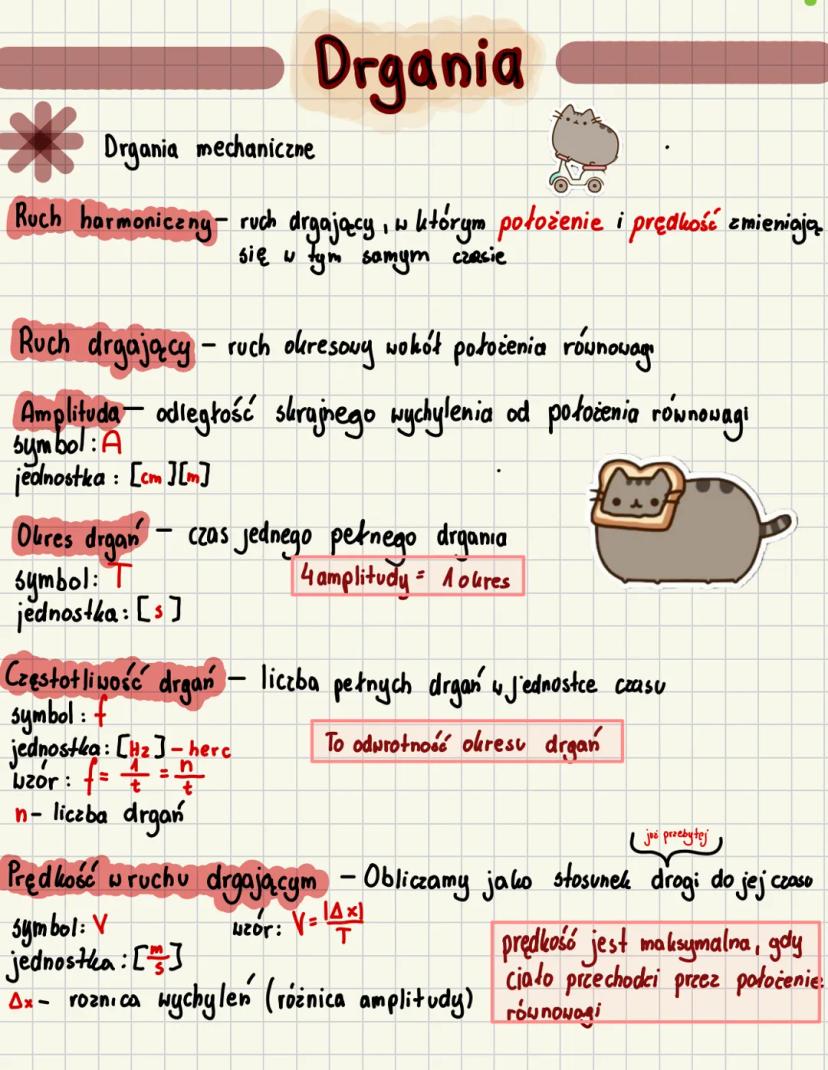 Drgania
Drgania mechaniczne
Ruch harmoniczny - ruch drgający, w którym położenie i prędkość zmieniają
się w tym samym czasie
Ruch drgający - ruch okresowy wokół położenia równowagi
Amplituda - odległość skrajnego wychylenia od położenia równowagi
symbol: A
jednostka: [cm][m]
Okres drgań - czas jednego pełnego drgania
symbol: T
4 amplitudy = 1 okres
jednostka: [s]
Częstotliwość drgań - liczba pełnych drgań w jednostce czasu
symbol: f
jednostka: [Hz] - herc
To odwrotność okresu drgań
wzór: f = 1/t = n/t
n - liczba drgań
już przebytej
Prędkość w ruchu drgającym - Obliczamy jako stosunek drogi do jej czaso
symbol: V
wzór: V = |Δx|/T
jednostka: [m/s]
Δx - roznica wychyleń (różnica amplitudy)
prędkość jest maksymalna, gdy
ciało przechodzi przez położenie
równowagi